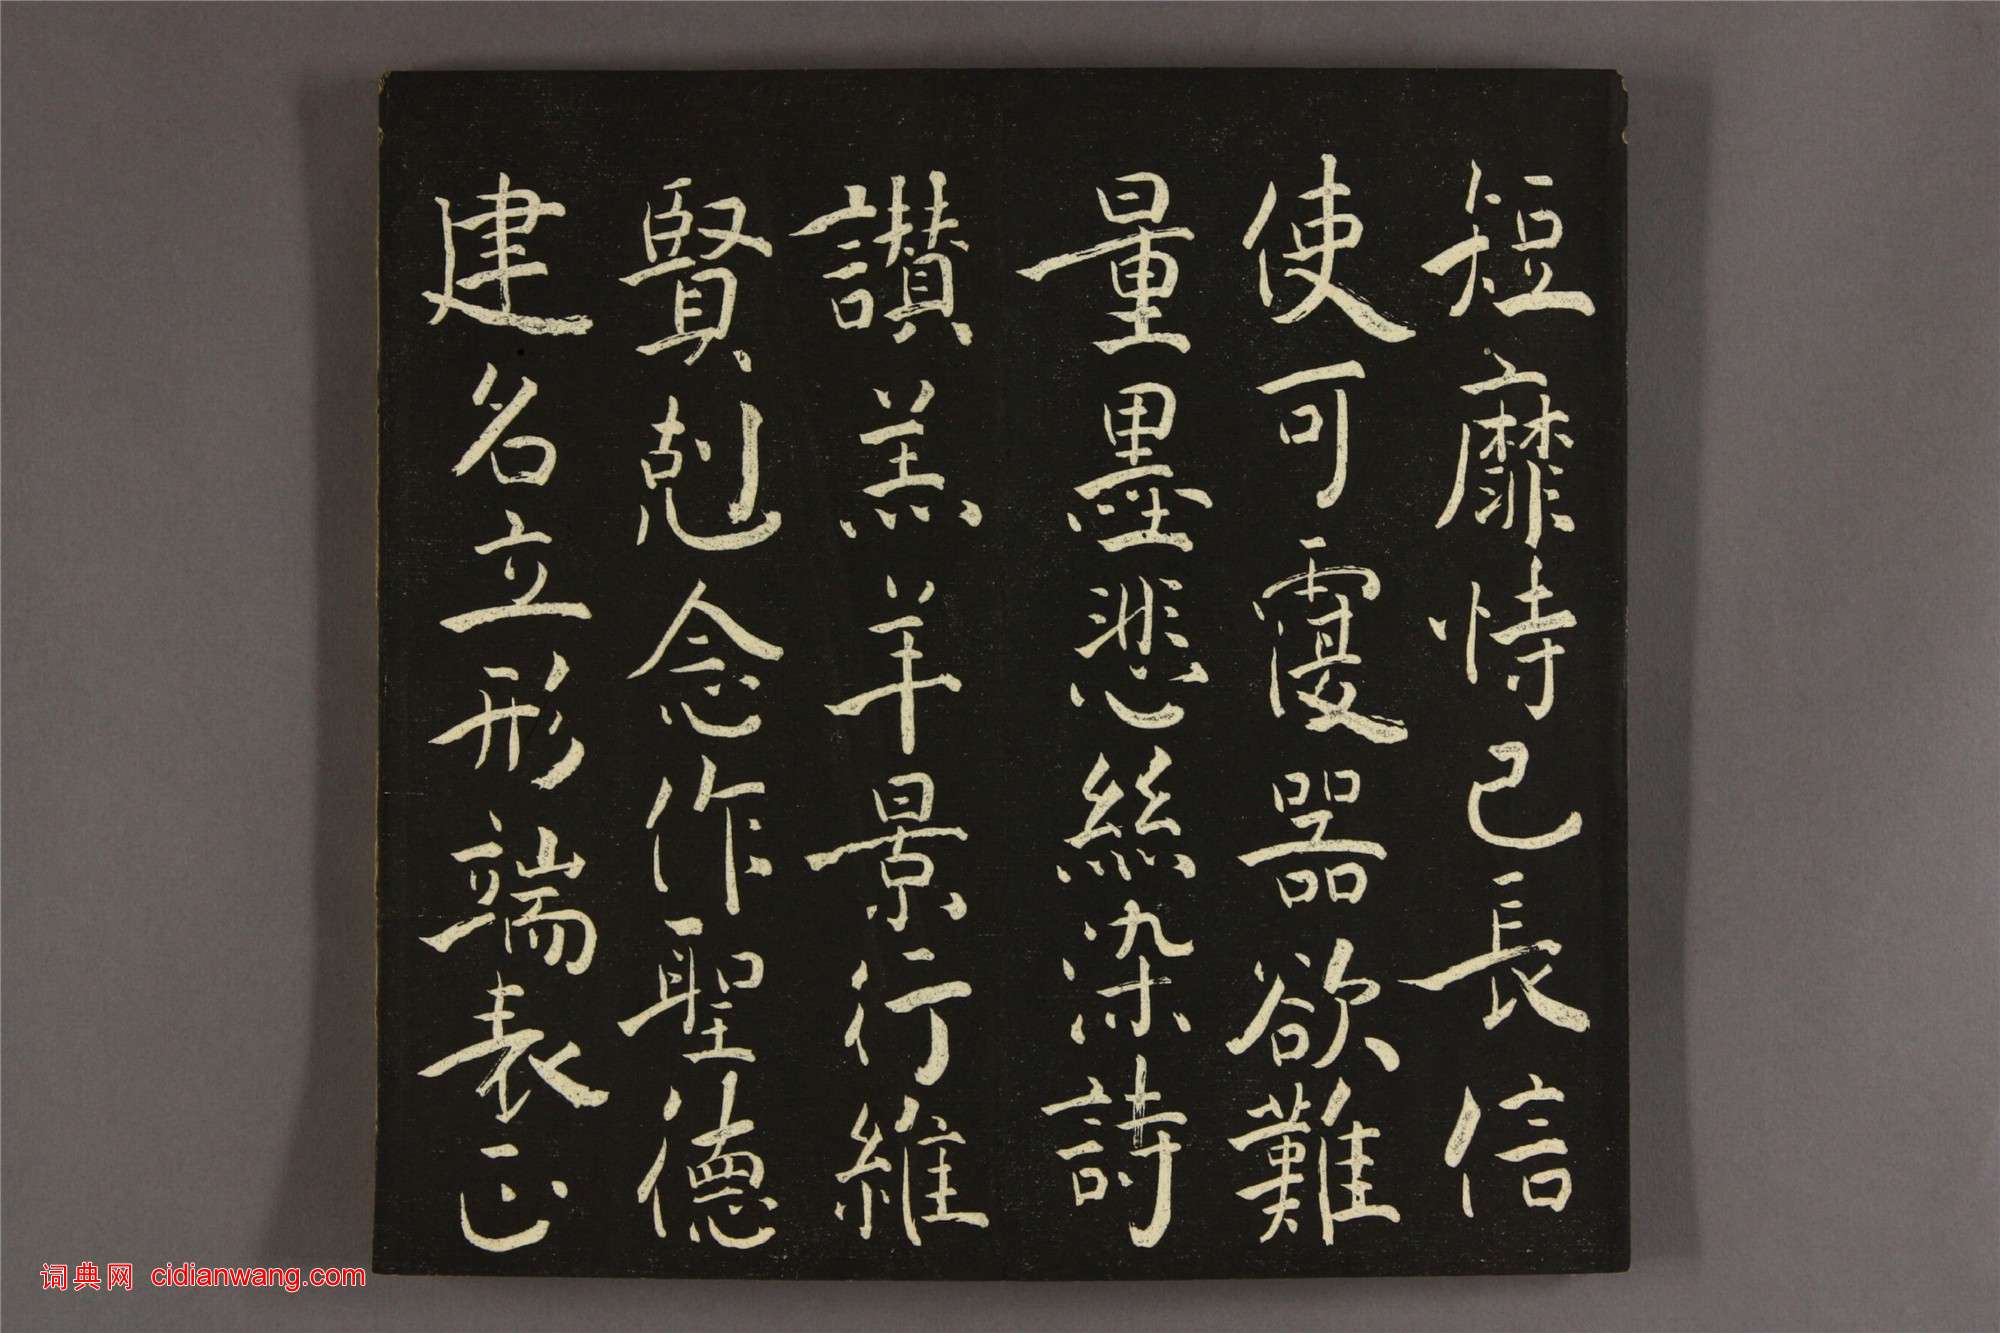 短靡恃己長信
使可覆器欲難
量墨悲絲染詩
讃羔羊景行維
賢剋念作聖德
建名立形端表正
词典网 cidianwang.com